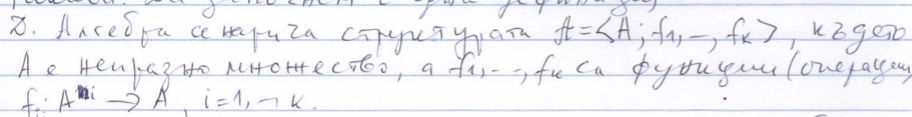 D. Алгебра се нарича структурата A=<A; f1,–, fк>, където
A е непразно множество, а f1,--, fк са функции (операции
fi: A^ni → A, i=1,¬ к.